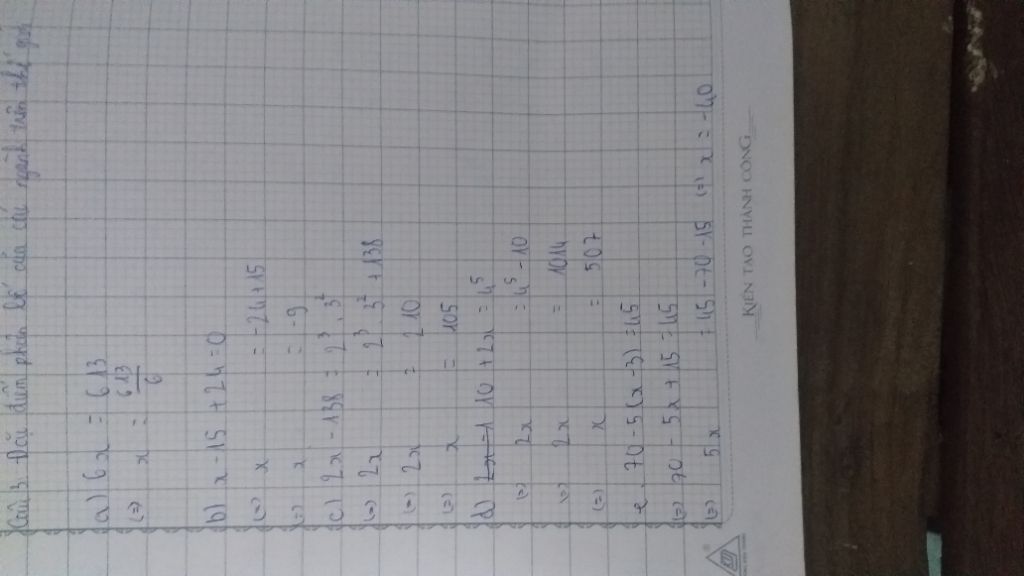 Câu 3. Dẫn phân bố của các ngành trên thế giới
a) 6x = 613
(=) x = 613/6
b) x - 15 + 24 = 0
(=) x = -24 + 15
(=) x = -9
c) 2x - 138 = 2³ . 3²
(=) 2x = 2³ . 3² + 138
(=) 2x = 210
(=) x = 105
d) 10 + 2x = 4⁵
(=) 2x = 4⁵ - 10
(=) 2x = 1014
(=) x = 507
e, 70 - 5(x - 3) = 45
(=) 70 - 5x + 15 = 45
(=) 5x = 45 - 70 - 15 (=) x = -40
KIẾN TẠO THÀNH CÔNG